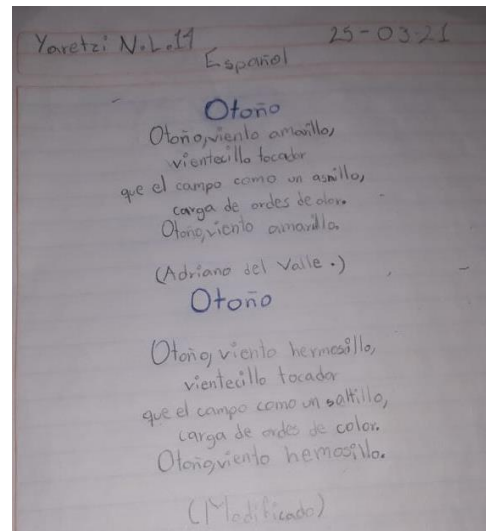 Yaretzi N.L.11 25-03-21
Español
Otoño
Otoño, viento amarillo,
vientecillo tocador
que el campo como un asnillo,
carga de ordes de olor.
Otoño, viento amarillo.
(Adriano del Valle.)
Otoño
Otoño, viento hermosillo,
vientecillo tocador
que el campo como un saltillo,
carga de ordes de color.
Otoño, viento hemosillo.
(Modificado)